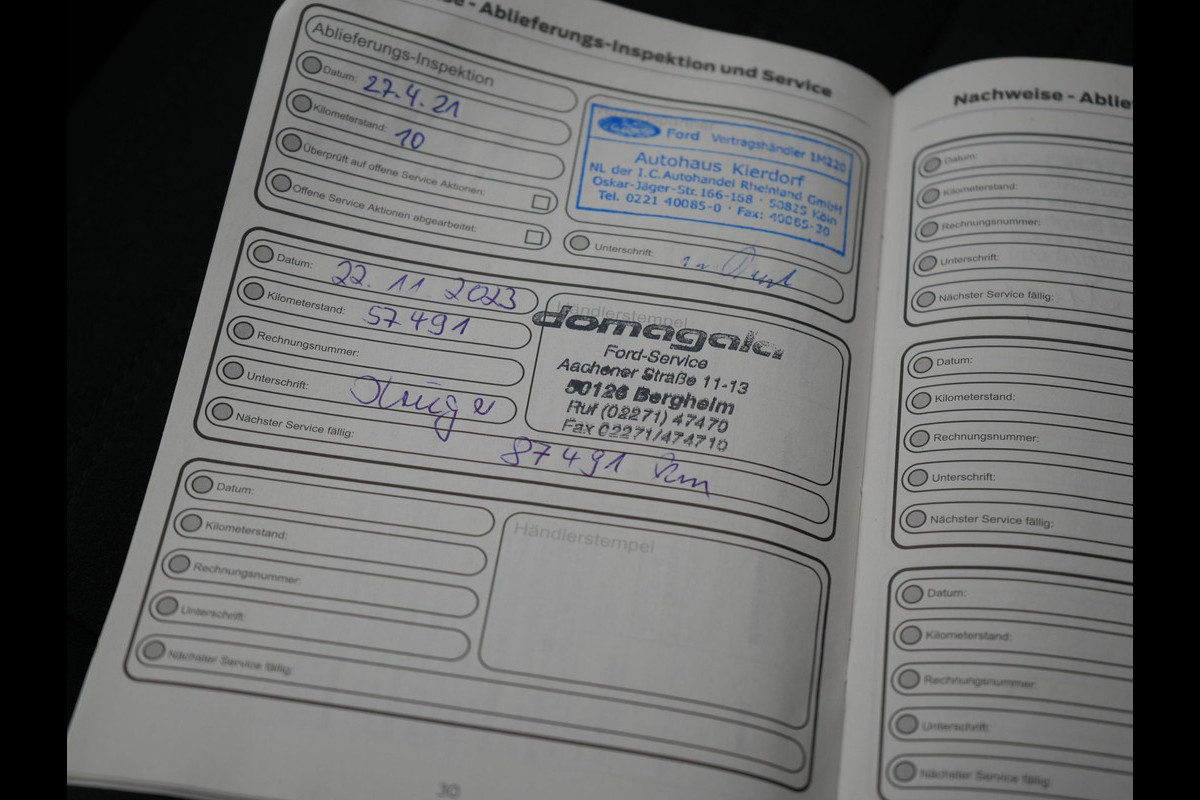 se - Ablieferungs-Inspektion und Service
Ablieferungs-Inspektion
Datum: 27.4.21
Kilometerstand: 10
Überprüft auf offene Service Aktionen:
Offene Service Aktionen abgearbeitet:
Ford Vertragshändler 1M220
Autohaus Kierdorf
NL der I.C.Autohandel Rheinland GmbH
Oskar-Jäger-Str.166-168 · 50825 Köln
Tel. 0221 40085-0 · Fax: 40085-30
Unterschrift:
Datum: 22.11.2023
Kilometerstand: 57491
Rechnungsnummer:
Unterschrift:
Nächster Service fällig: 87491 km
Händlerstempel
domagala
Ford-Service
Aachener Straße 11-13
50126 Bergheim
Ruf (02271) 47470
Fax 02271/474710
Datum:
Kilometerstand:
Rechnungsnummer:
Unterschrift:
Nächster Service fällig:
Händlerstempel
30
Nachweise - Ablie
Datum:
Kilometerstand:
Rechnungsnummer:
Unterschrift:
Nächster Service fällig:
Datum:
Kilometerstand:
Rechnungsnummer:
Unterschrift:
Nächster Service fällig:
Datum:
Kilometerstand:
Rechnungsnummer:
Unterschrift:
Nächster Service fällig: